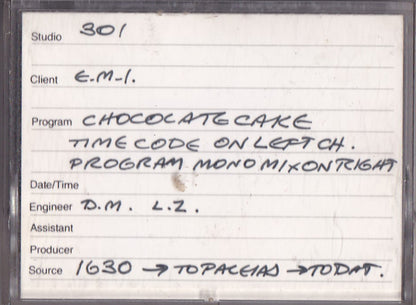 Studio 301
Client E.M.I.
Program CHOCOLATE CAKE
TIME CODE ON LEFT CH.
PROGRAM MONO MIX ON RIGHT
Date/Time
Engineer D.M. L.Z.
Assistant
Producer
Source 1630 → TO → TO DAT.